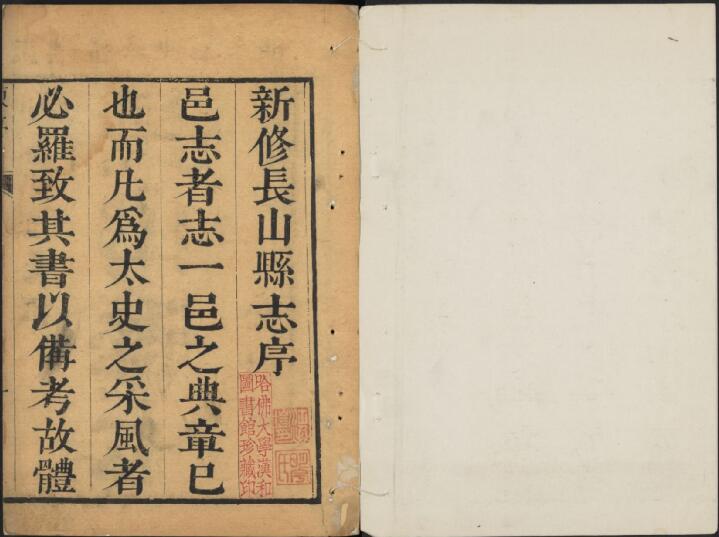 新修長山縣志序
邑志者志一邑之典章已
也而凡爲太史之采風者
必羅致其書以備考故體
哈佛大學漢和
圖書館珍藏印